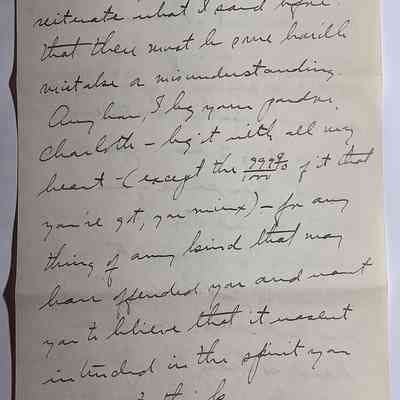 reiterate what I said before:
that there must be some horrible
mistake or misunderstanding.
Anyhow, I beg your pardon,
Charlotte – beg it with all my
heart – (except the 99 99/100 of it that
you've got, you minx) – for any
thing of any kind that may
have offended you and want
you to believe that it wasn't
intended in the spirit you
think